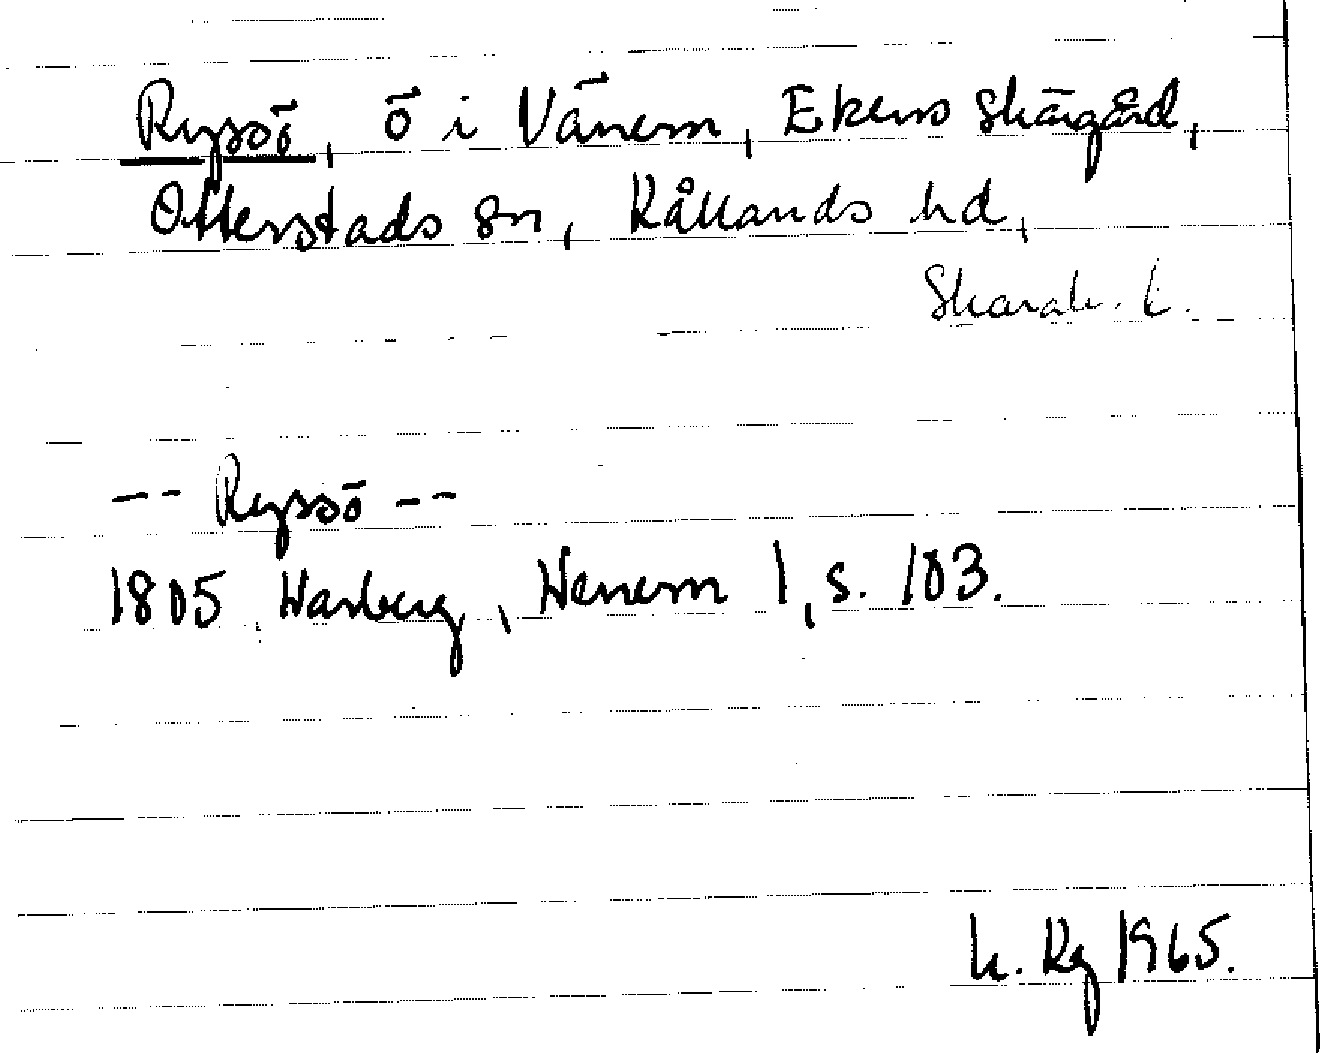 Ryssö, ö i Vänern, Ekens Skärgård,
Otterstads sn, Kållands hd,
Skarab. l.
-- Ryssö --
1805 Warberg, Wenern 1, s. 103.
h. Kg 1965.